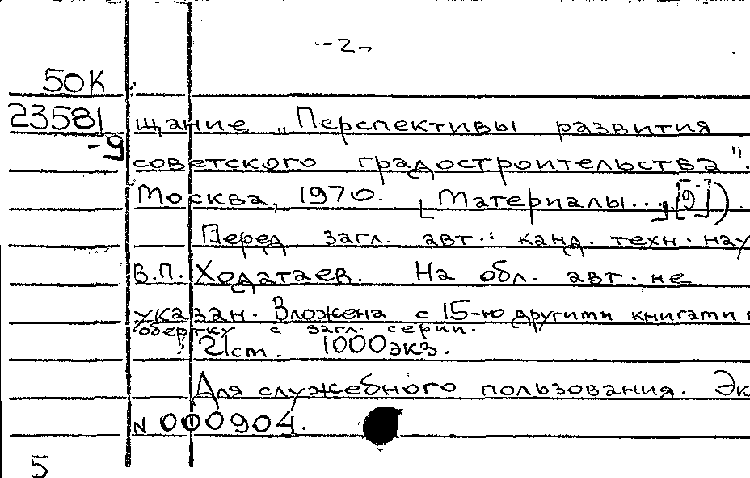 -2-
50К
23581
-9
щание „Перспективы развития
советского градостроительства".
Москва, 1970. [Материалы... [9]).
Перед загл. авт.: канд. техн. нау
В.П. Ходатаев. На обл. авт. не
указан. Вложена с 15-ю другими книгами
обертку с загл. серии.
21см. 1000экз.
Для служебного пользования. Эк
N 000904.
5